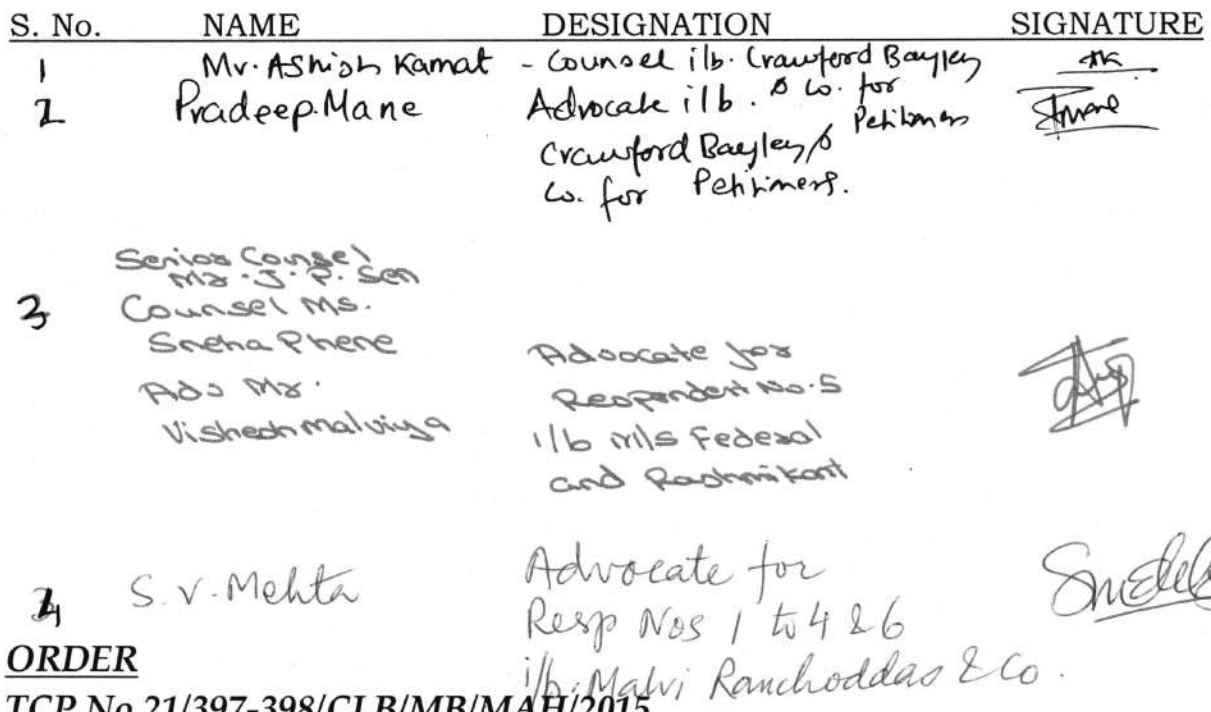 S. No. NAME DESIGNATION SIGNATURE
1 Mr. Ashish Kamat - Counsel i/b. Crawford Bayley
& Co. for Petitioners
2 Pradeep. Mane Advocate i/b.
Crawford Bayley &
Co. for Petitioners.
Senior Counsel
Mr. J. P. Sen
3 Counsel Ms.
Sneha Phene
Adv Mr.
Vishesh Malviya
Advocate for
Respondent No. 5
i/b M/s Federal
and Rashmikant
4 S. V. Mehta Advocate for
Resp Nos 1 to 4 & 6
i/b. Malvi Ranchoddas & Co.
ORDER
TCP No 21/397-398/CLB/MB/MAH/2015